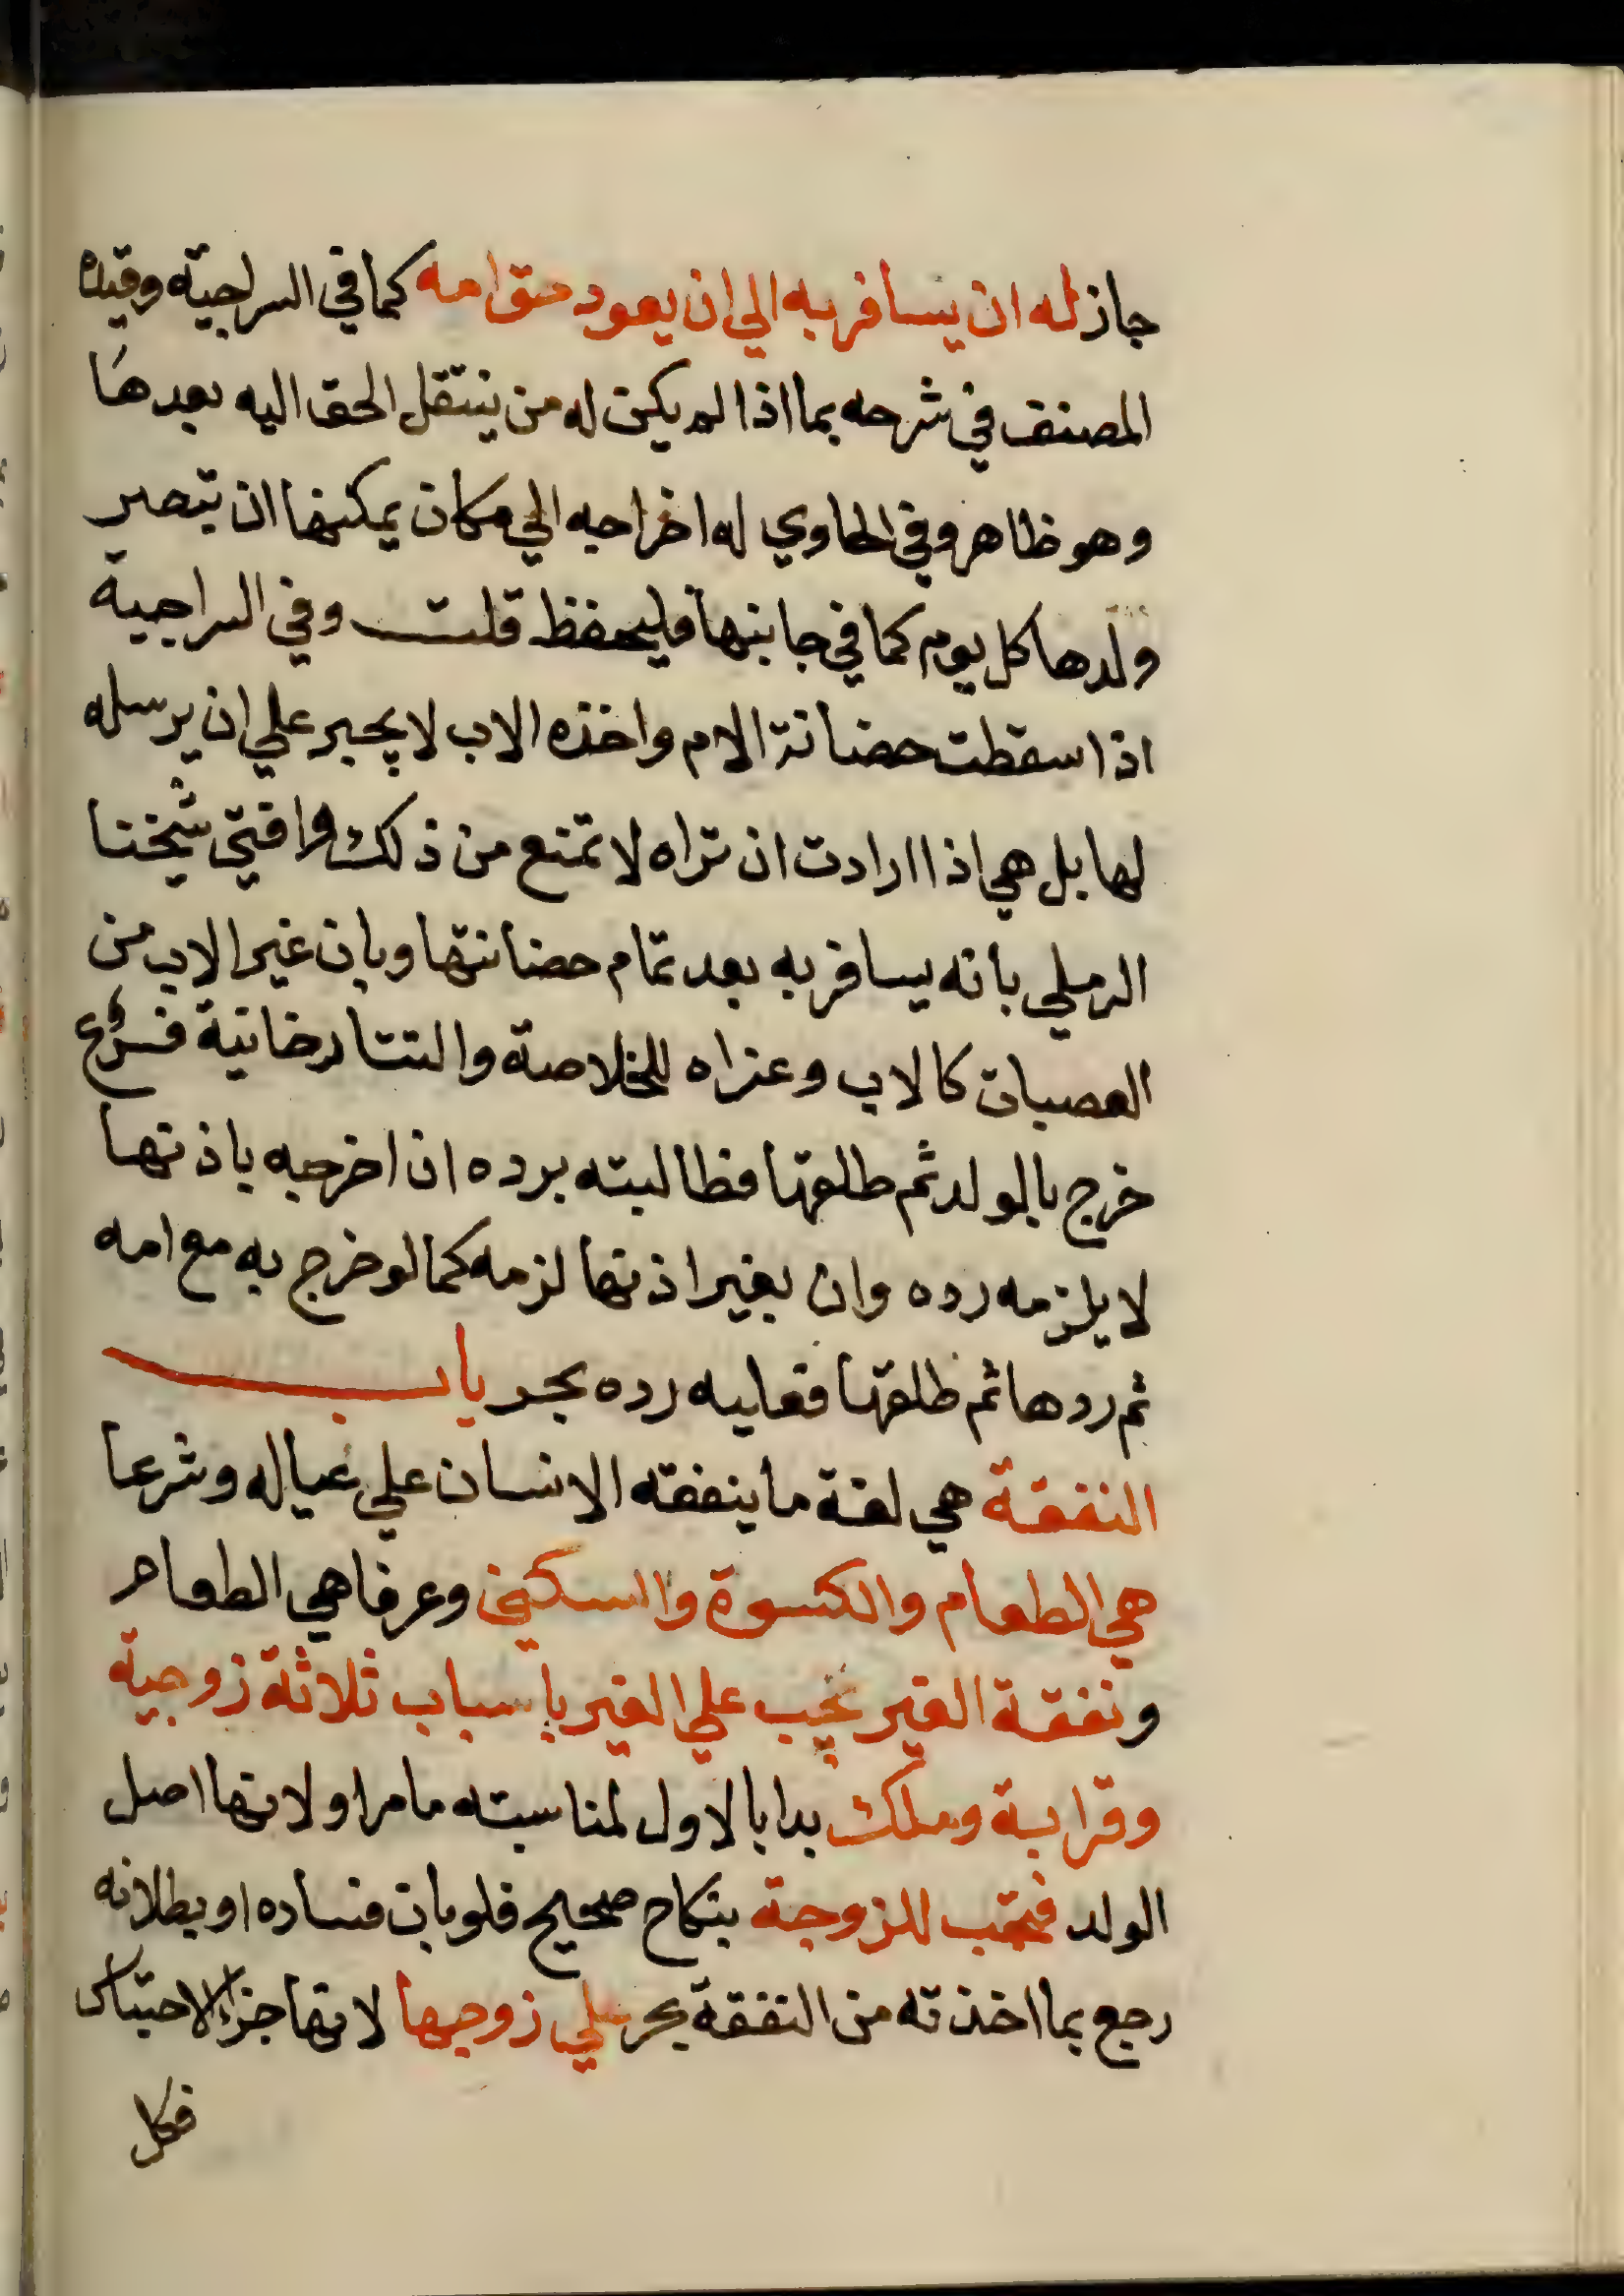 جاز له ان يسافر به الي ان يعود حق امه كما في السراجية وقيده
المصنف في شرحه بما اذا لم يكن له من ينتقل الحق اليه بعدها
وهو ظاهر وفي الحاوي له اخراجه الي مكان يمكنها ان تبصر
ولدها كل يوم كما في جانبها فليحفظ قلت وفي السراجية
اذا سقطت حضانة الام واخذه الاب لا يجبر علي ان يرسله
لها بل هي اذا ارادت ان تراه لا تمنع من ذلك وافتي شيخنا
الرملي بانه يسافر به بعد تمام حضانتها وبان غير الاب من
العصبات كالاب وعزاه للخلاصة والتتارخانية فرع
خرج بالولد ثم طلقها فطالبته برده ان اخرجه باذنها
لا يلزمه رده وان بغير اذنها لزمه كما لو خرج به مع امه
ثم ردها ثم طلقها فعليه رده بحر باب
النفقة هي لغة ما ينفقه الانسان علي عياله وشرعا
هي الطعام والكسوة والسكني وعرفا هي الطعام
ونفقة الغير تجب علي الغير باسباب ثلاثة زوجية
وقرابة وملك بدا بالاول لمناسبته ما مر او لانها اصل
الولد فتجب للزوجة بنكاح صحيح فلو بان فساده او بطلانه
رجع بما اخذته من النفقة بحر علي زوجها لانها جزاء الاحتباس
فكل